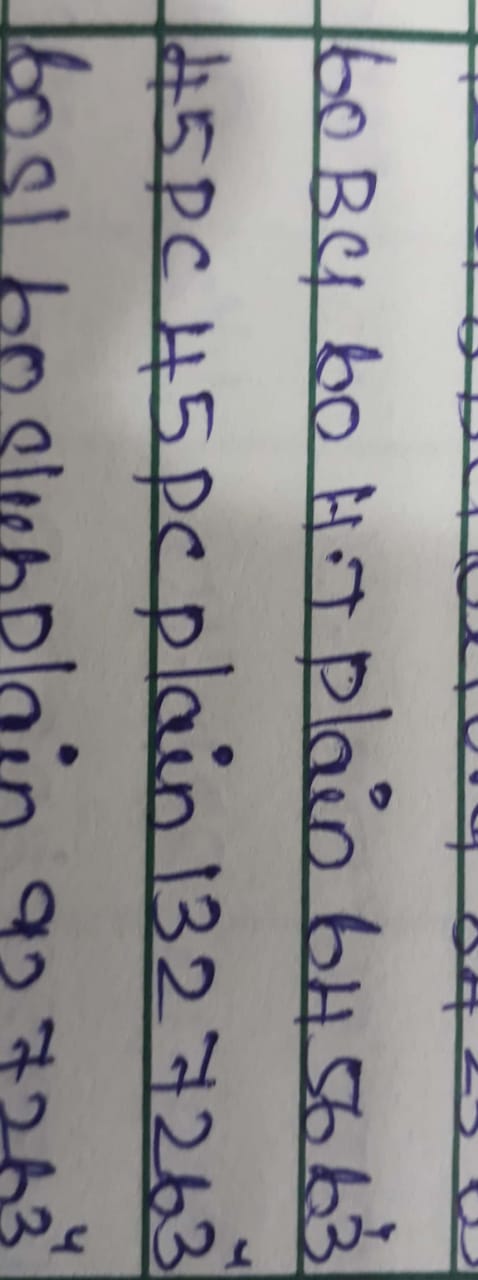 60 BG 60 H.T plain 64 56 63"
45 PC 45 PC plain 132 72 63"
60 Sl 60 slub plain 92 72 63"